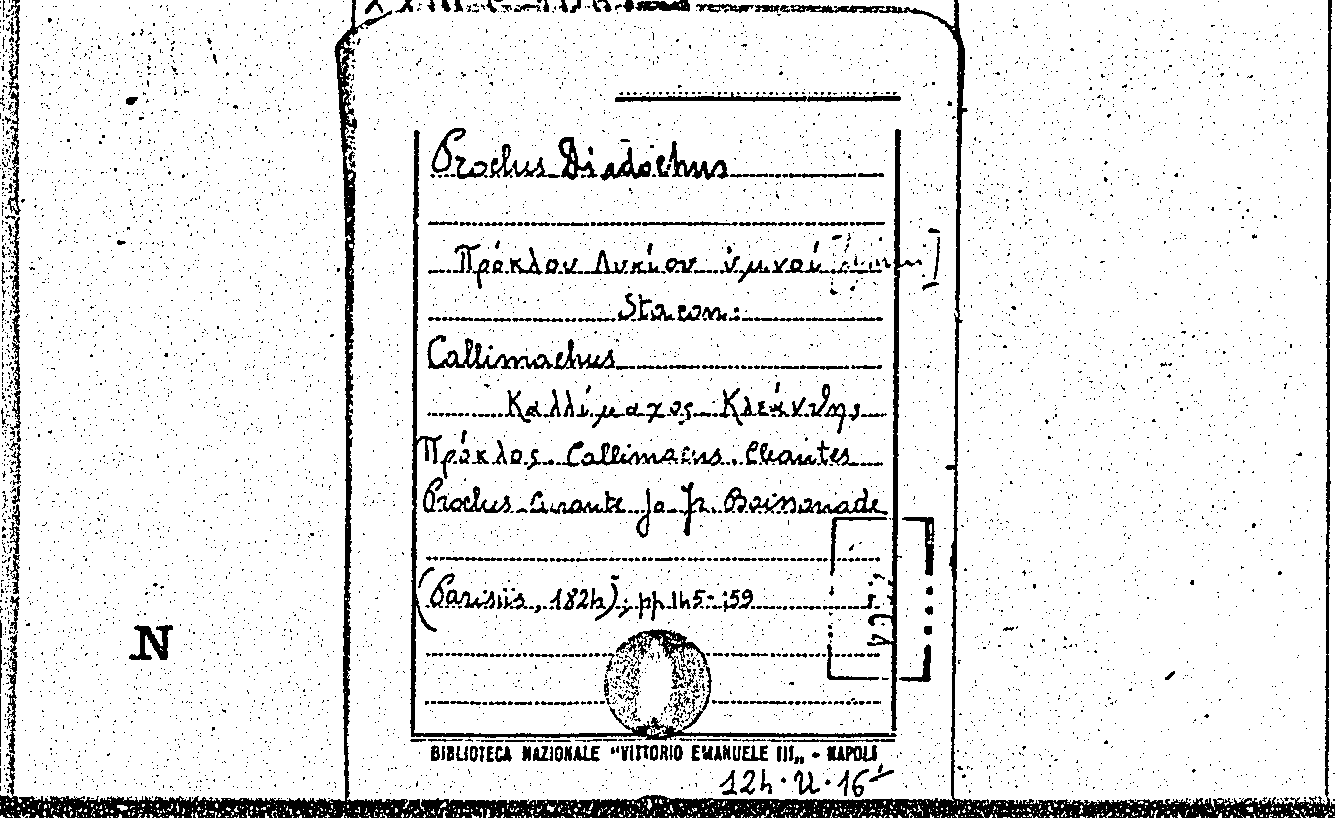 Proclus Diadochus
Πρόκλου Λυκίου ὑμνοί
Sta con:
Callimachus
Καλλίμαχος Κλεάνθης
Πρόκλος Callimacus Cleantes
Proclus Curante Jo Fr. Boissonade
(Parisiis, 1824); pp 145-159
N
BIBLIOTECA NAZIONALE "VITTORIO EMANUELE III„ - NAPOLI